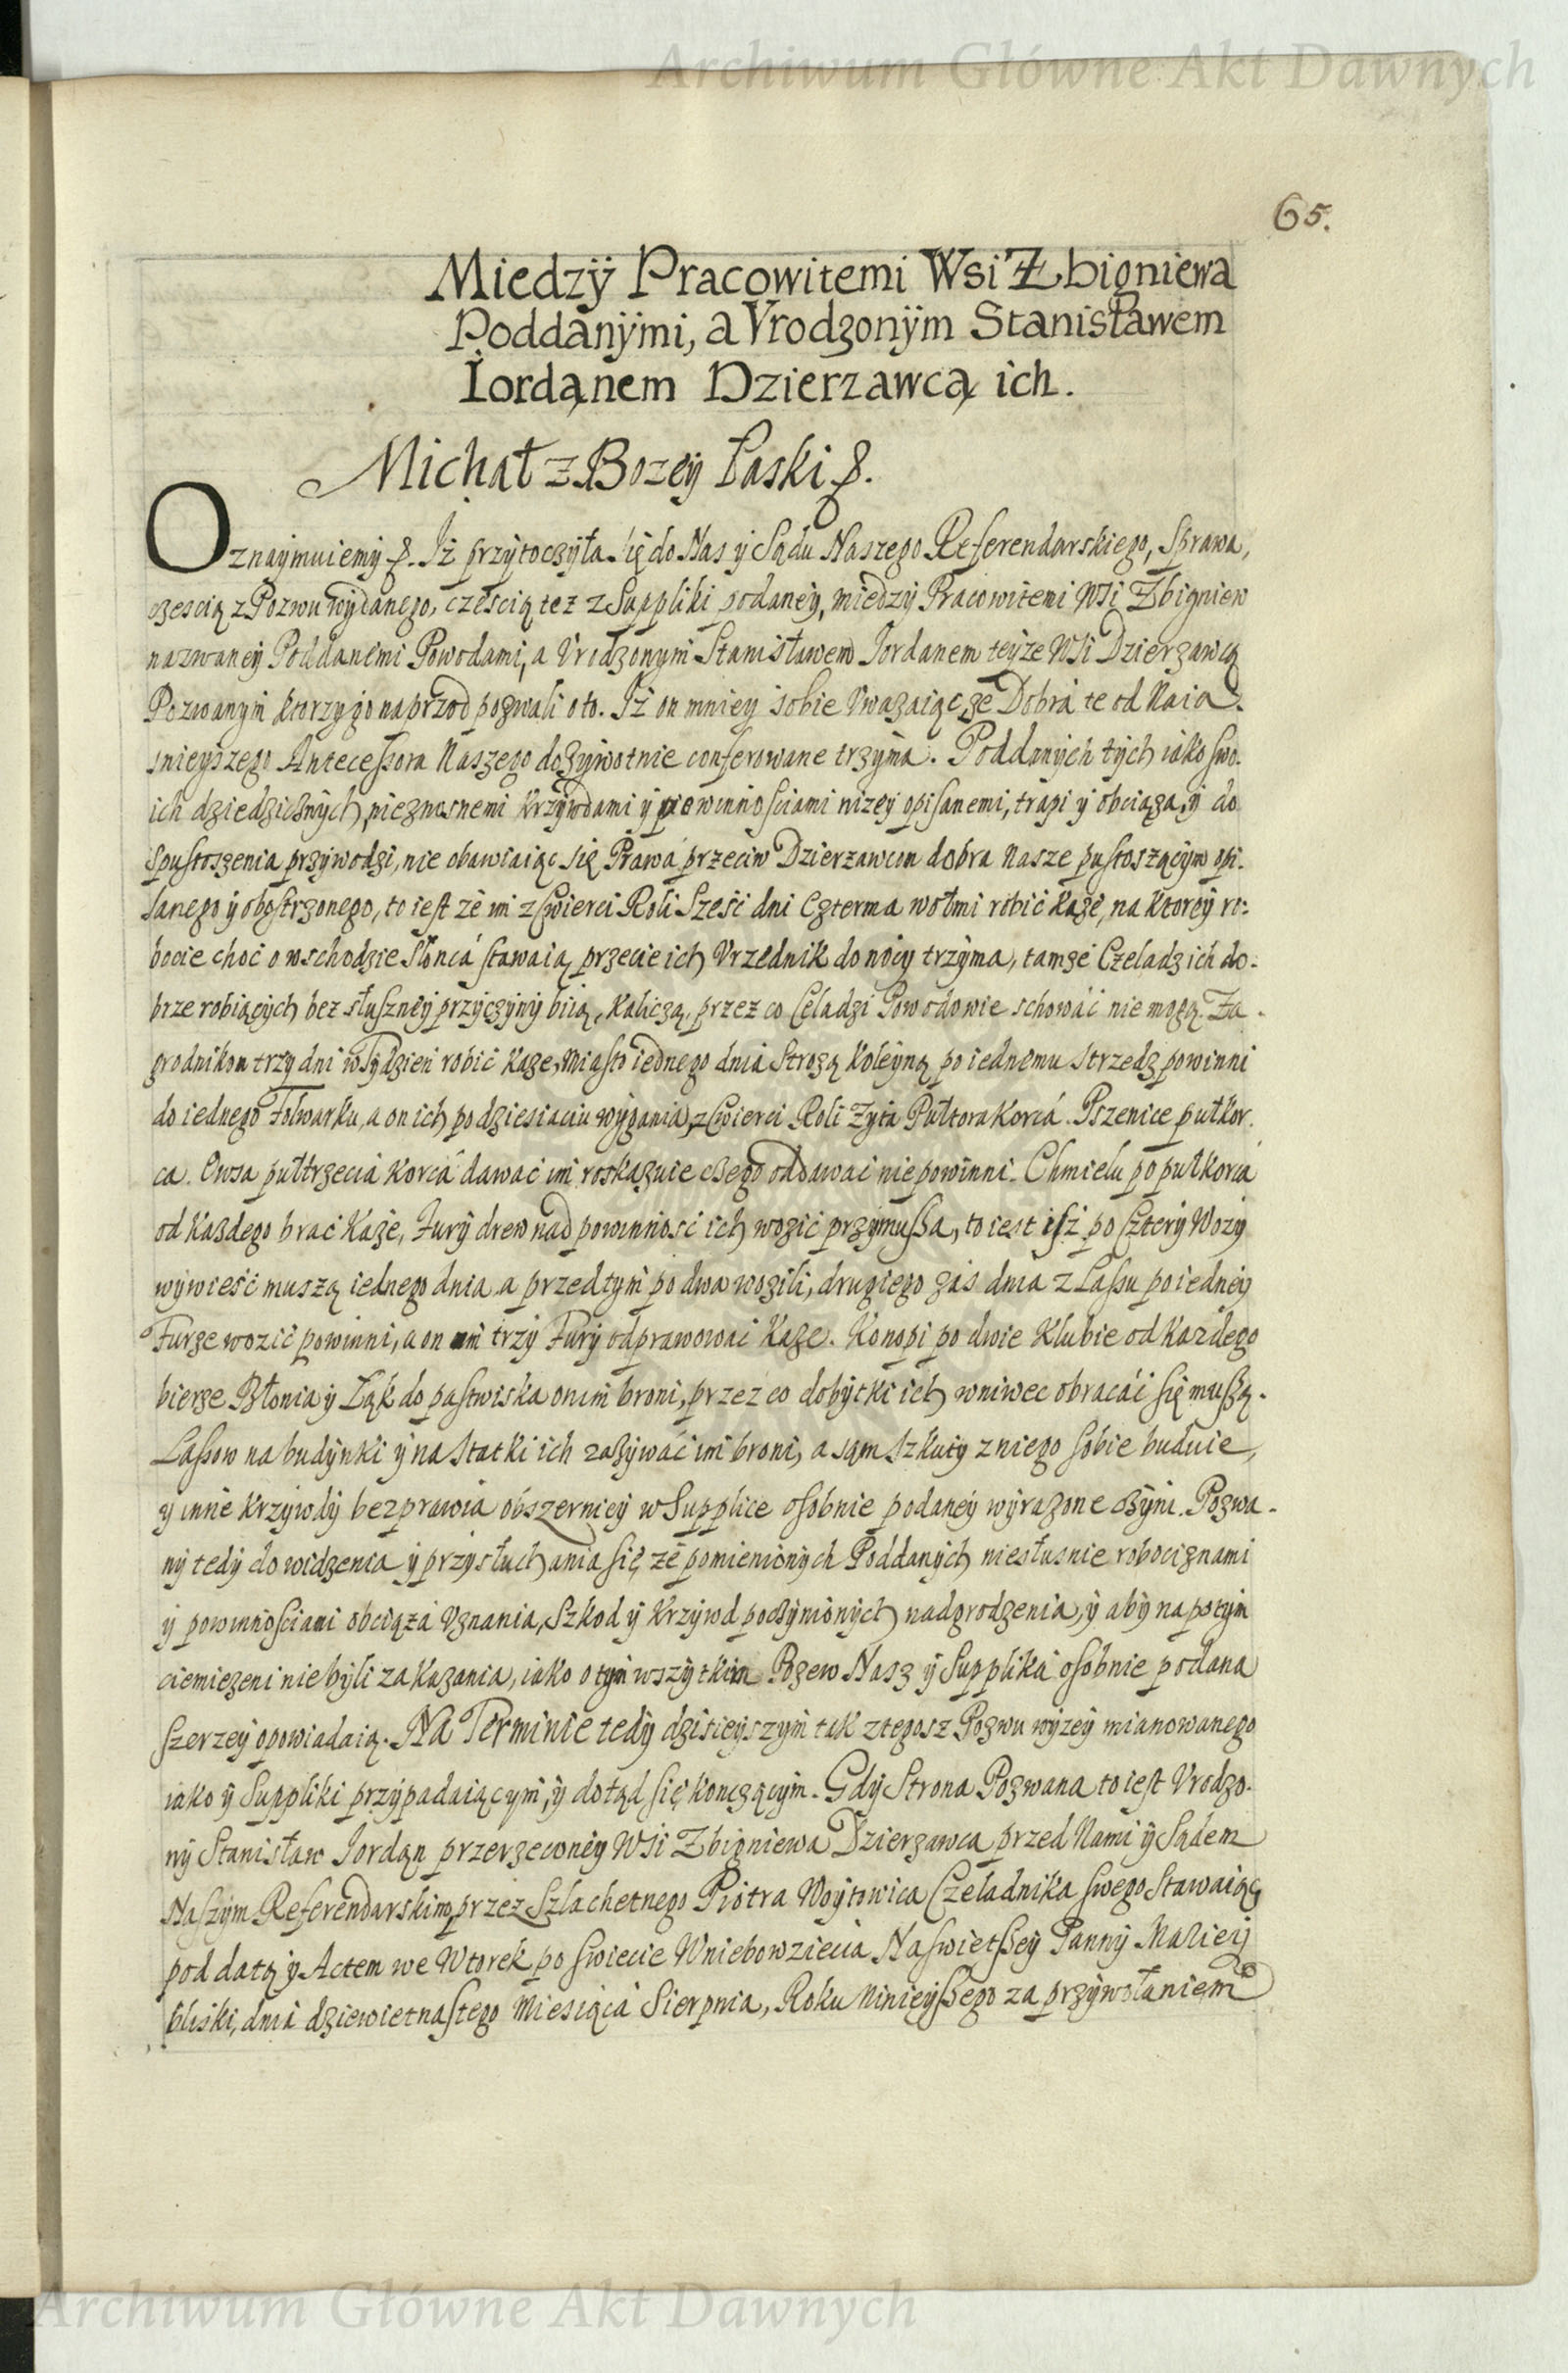 Archiwum Główne Akt Dawnych
65.
Miedzÿ Pracowitemi Wsi Zbigniewa
Poddanÿmi, a Vrodzonÿm Stanisławem
Iordąnem Dzierzawcą ich.
Michał z Bozeÿ Łaski &.
Oznaÿmuiemÿ &. Iż przÿtoczÿła się do Nas ÿ Sądu Naszego Referendarskiego, Sprawa,
czescią z Pozwu wÿdanego, czescią tez z Suppliki podaneÿ, miedzÿ Pracowitemi WSi Zbigniew
nazwaneÿ Poddanemi Powodami, a Vrodzonym Stanisławem Iordanem teÿze WSi Dzierzawcą
Pozwanÿm ktorzy go naprzod pozwali o to. Iż on mniey sobie Vwazaiąc ze Dobra te od Naia-
snieyszego Antecessora Naszego dozÿwotnie conferowane trzÿma. Poddanÿch tÿch iako swo-
ich dziedzicznÿch, nieznosnemi krzÿwdami ÿ powinnosciami nizeÿ opisanemi, trapi ÿ obciąza, ÿ do
spustoszenia przÿwodzi, nie obawiaiąc się Prawa przeciw Dzierzawcom dobra Nasze pustoszącÿm opi-
sanego ÿ obostrzonego, to iest ze im z Cwierci Roli Sześć dni Czterma wołmi robić kaze, na ktoreÿ ro-
bocie choć o wschodzie Słonca stawaią, przecie ich Vrzednik do nocÿ trzÿma, tamze Czeladz ich do-
brze robiącÿch bez słuszneÿ przÿczÿnÿ biią, kaliczą, przez co Celadzi Powodowie schowáć nie mogą. Za-
grodnikom trzÿ dni w Tÿdzien robić kaze, miasto iednego dnia Strozą koleÿną po iednemu strzedz powinni
do iednego Folwarku, a on ich po dziesiaciu wÿgania, z Cwierci Roli Zyta Pułtora korca. Pszenice pułkor-
ca. Owsa pułtrzecia korca dawać im roskazuie czego oddawać nie powinni. Chmielu po pułkorca
od kazdego brać kaze, Furÿ drew nad powinność ich wozić przÿmusza, to iest isz po Czterÿ Wozÿ
wÿwieść muszą iednego dnia a przedtÿm po dwa wozili, drugiego zas dnia z Lassu po iedneÿ
Furze wozić powinni, a on im trzÿ Furÿ odprawować kaze. Konopi po dwie klubie od kazdego
bierze Błonia ÿ Łąk do pastwiska onim broni, przez co dobÿtki ich wniwec obracáć się muszą.
Lassow na budÿnki ÿ na Statki ich zazÿwáć im broni, a sąm szkutÿ z niego sobie buduie,
y inne krzÿwdÿ bezprawia obszernieÿ w Supplice osobnie podaneÿ wÿrazone czÿni. Pozwa-
nÿ tedÿ do widzenia ÿ przÿsłuchania się, ze pomienionÿch Poddanÿch niesłusnie robociznami
ÿ powinnosciami obciąza Vznania, Szkod ÿ krzÿwd poczÿnionÿch nadgrodzenia, ÿ abÿ na potÿm
ciemiezeni nie bÿli zakazania, iako o tÿm wszÿtkim Pozew Nasz ÿ Supplika osobnie podana
szerzeÿ opowiadaią. Na Terminie tedÿ dzisieÿszÿm tak z tegosz Pozwu wÿzeÿ mianowanego
iako ÿ Suppliki przÿpadaiącÿm, ÿ dotąd się konczącÿm. Gdÿ Strona Pozwana to iest Vrodzo-
nÿ Stanisław Iordąn przerzeconeÿ WSi Zbigniewa Dzierzawca przed Nami ÿ Sądem
Naszÿm Referendarskim, przez Szlachetnego Piotra Woÿtowica Czeladnika swego Stawaiąc
pod datą ÿ Actem we Wtorek po swiecie Wniebowziecia Naswietszeÿ Pannÿ Marieÿ
bliski, dnia dziewietnastego Miesiąca Sierpnia, Roku Ninieÿszego za przÿwołaniem
Archiwum Główne Akt Dawnych